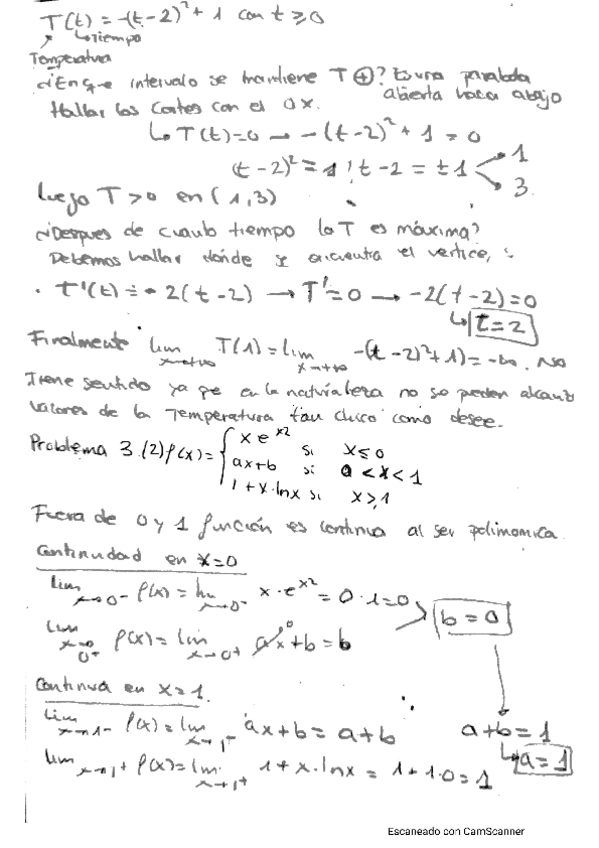 T(t) = -(t-2)² + 1 con t ≥ 0
↳ Tiempo
Temperatura
¿En que intervalo se mantiene T ⊕? Es una parabola
abierta hacia abajo
Hallar los Cortes con el OX.
↳ T(t)=0 → -(t-2)² + 1 = 0
(t-2)² = 1 ; t-2 = ±1 1
3
luego T > 0 en (1,3)
¿Despues de cuanto tiempo la T es máxima?
Debemos hallar dónde se encuentra el vertice,
T'(t) = -2(t-2) → T'=0 → -2(t-2)=0
↳ t=2
Finalmente lim x→+∞ T(1) = lim x→+∞ -(t-2)²+1) = -∞. No
Tiene sentido ya que en la naturaleza no se pueden alcanzar
valores de la Temperatura tan chico como desee.
Problema 3.(2) f(x) = { x e^x2 si x ≤ 0
ax+b si 0 < x < 1
1 + x·lnx si x ≥ 1
Fuera de 0 y 1 función es continua al ser polinomica.
Continuidad en x=0
lim x→0- f(x) = lim x→0- x·e^x2 = 0·1=0
b=0
lim x→0+ f(x) = lim x→0+ ax+b = b
Continua en x=1.
lim x→1- f(x) = lim x→1- ax+b = a+b a+b=1
↳ a=1
lim x→1+ f(x) = lim x→1+ 1+x·lnx = 1+1·0=1
Escaneado con CamScanner